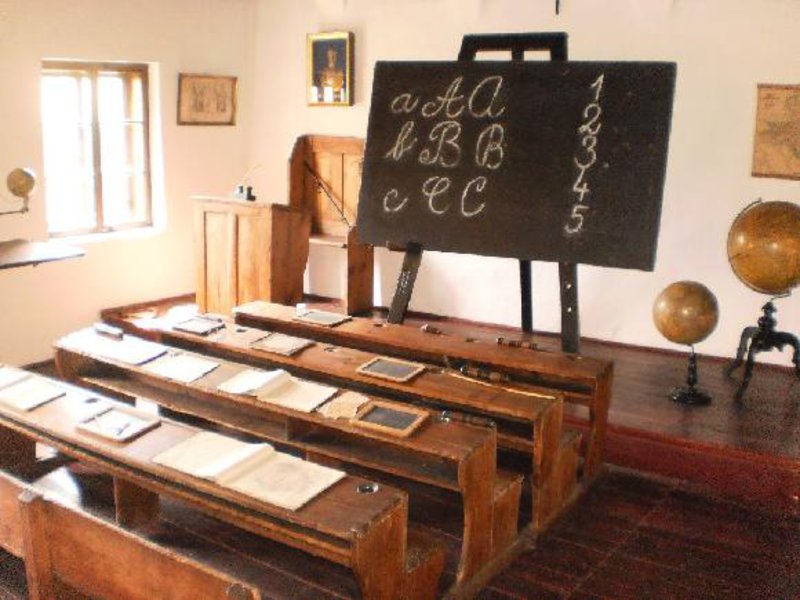 a A A
b B B
c C C
1
2
3
4
5